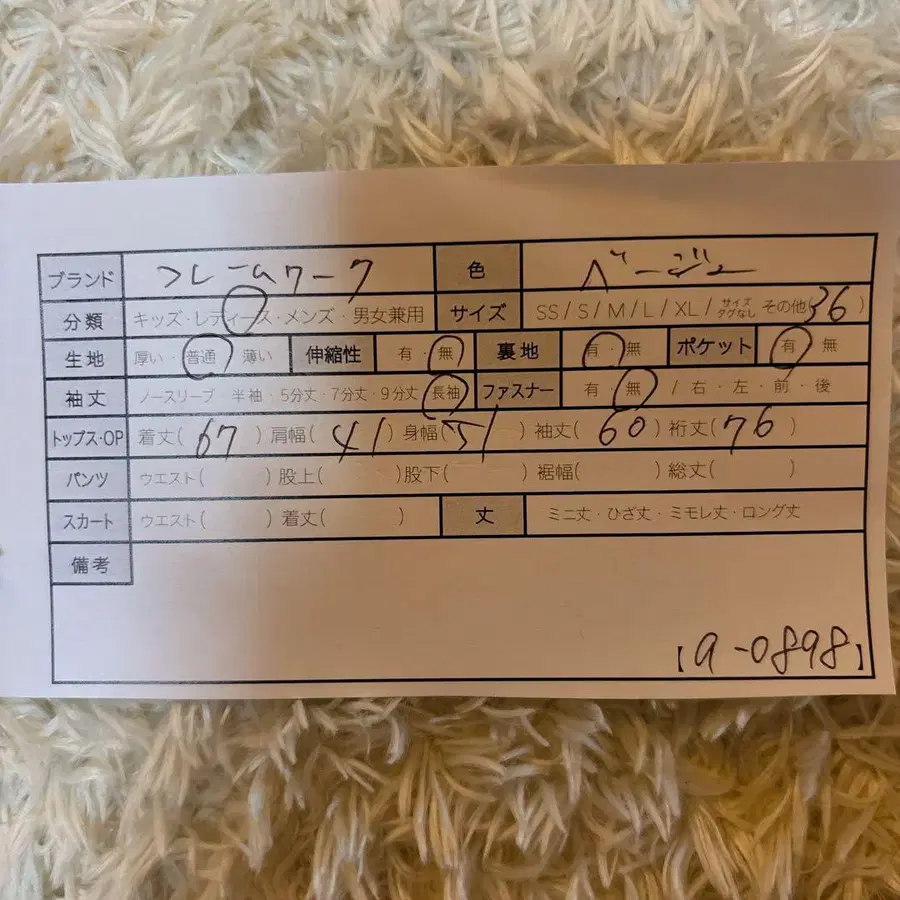 ブランド フレームワーク 色 ベージュ
分類 キッズ・レディース・メンズ・男女兼用 サイズ SS / S / M / L / XL / サイズタグなし その他(36)
生地 厚い・普通・薄い 伸縮性 有・無 裏地 有・無 ポケット 有・無
袖丈 ノースリーブ・半袖・5分丈・7分丈・9分丈・長袖 ファスナー 有・無 / 右・左・前・後
トップス・OP 着丈(67) 肩幅(41) 身幅(51) 袖丈(60) 裄丈(76)
パンツ ウエスト( ) 股上( ) 股下( ) 裾幅( ) 総丈( )
スカート ウエスト( ) 着丈( ) 丈 ミニ丈・ひざ丈・ミモレ丈・ロング丈
備考
【a-0898】